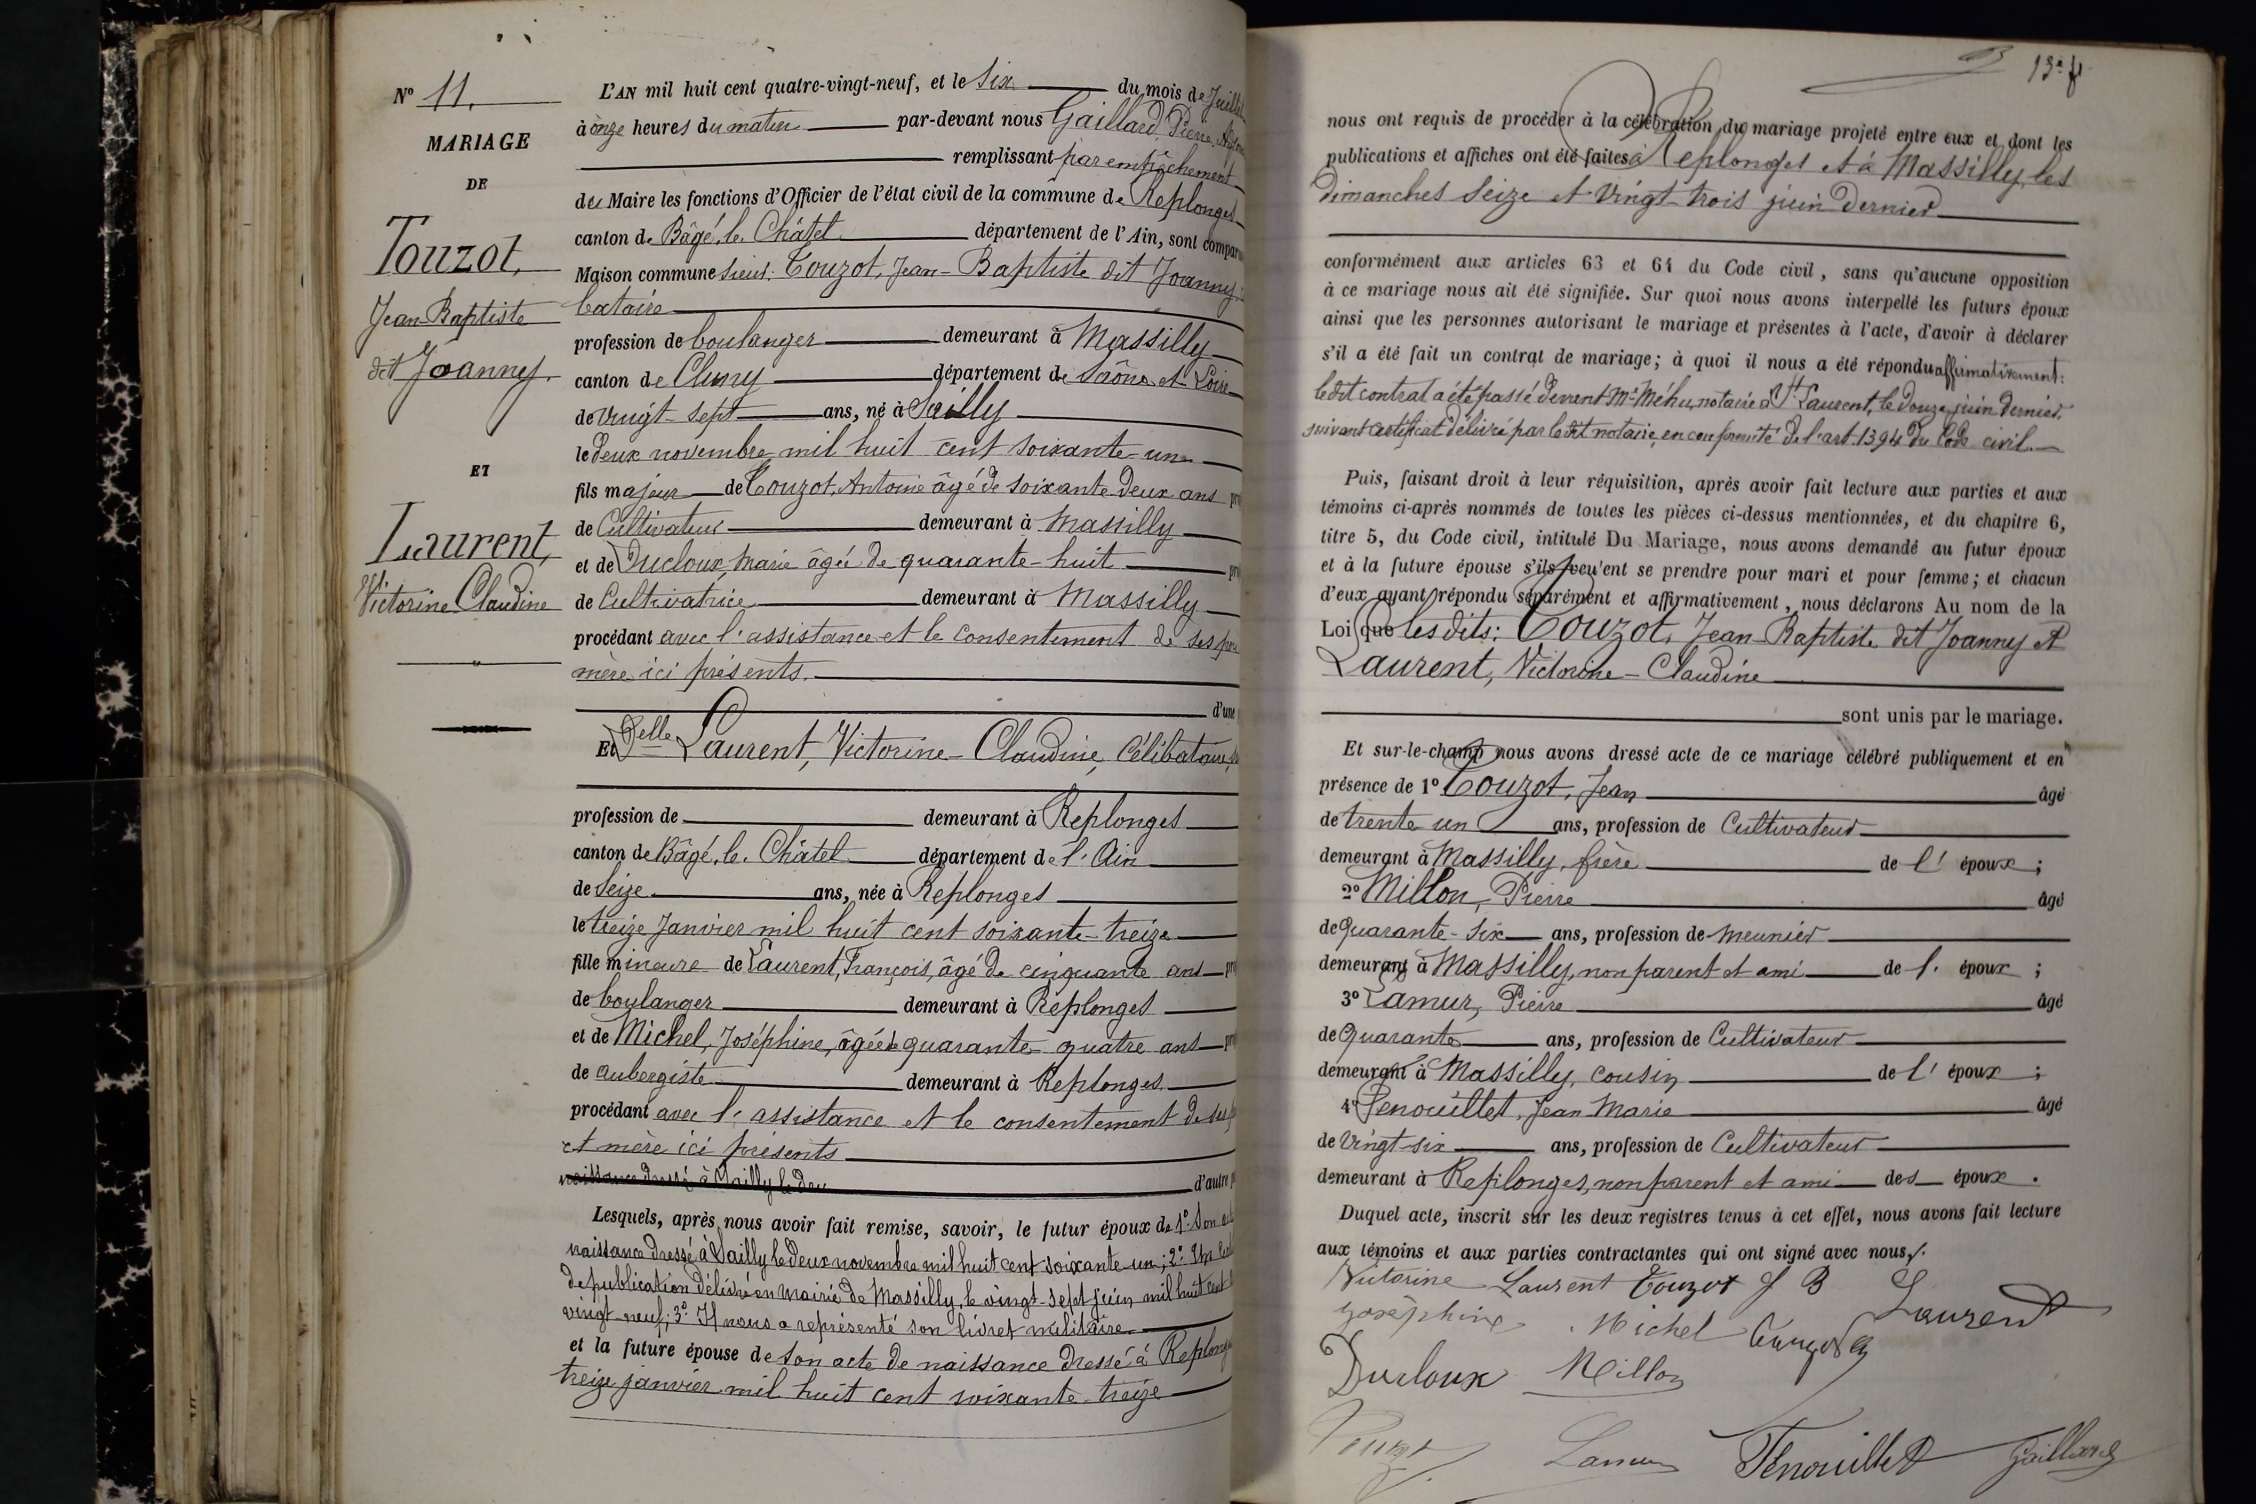 N° 11.
MARIAGE
DE
Touzot,
Jean-Baptiste
dit Joanny.
ET
Laurent,
Victorine Claudine
L'AN mil huit cent quatre-vingt-neuf, et le Six du mois de Juillet
à onze heures du matin par-devant nous Gaillard Pierre,
remplissant par empêchement
du Maire les fonctions d'Officier de l'état civil de la commune de Replonges
canton de Bâgé-le-Châtel département de l'Ain, sont compar
Maison commune sieur: Touzot, Jean-Baptiste dit Joanny
bataire
profession de boulanger demeurant à Massilly
canton de Cluny département de Saône et Loire
de vingt-sept ans, né à Sailly
le deux novembre mil huit cent soixante-un
fils majeur de Touzot, Antoine âgé de soixante deux ans pr
de Cultivateur demeurant à Massilly
et de Ducloux, Marie âgée de quarante-huit pr
de Cultivatrice demeurant à Massilly
procédant avec l'assistance et le consentement de ses père
mère ici présents.
d'une
Et Delle Laurent, Victorine-Claudine, Célibataire,
profession de demeurant à Replonges
canton de Bâgé-le-Châtel département de l'Ain
de Seize ans, née à Replonges
le treize Janvier mil huit cent soixante-treize
fille mineure de Laurent, François, âgé de cinquante ans pr
de boulanger demeurant à Replonges
et de Michel, Joséphine, âgée de quarante quatre ans pr
de aubergiste demeurant à Replonges
procédant avec l'assistance et le consentement de ses
et mère ici présents
naissance dressé à Sailly le deu
d'autre p
Lesquels, après nous avoir fait remise, savoir, le futur époux de 1° Son
naissance dressé à Sailly le deux novembre mil huit cent soixante-un; 2° Un
de publication délivré en mairie de Massilly, le vingt-sept juin mil huit cent
vingt-neuf; 3° Il nous a représenté son livret militaire.
et la future épouse de son acte de naissance dressé à Replonges
treize janvier mil huit cent soixante-treize
nous ont requis de procéder à la célébration du mariage projeté entre eux et dont les
publications et affiches ont été faites à Replonges et à Massilly, les
dimanches seize et vingt-trois juin dernier
conformément aux articles 63 et 64 du Code civil, sans qu'aucune opposition
à ce mariage nous ait été signifiée. Sur quoi nous avons interpellé les futurs époux
ainsi que les personnes autorisant le mariage et présentes à l'acte, d'avoir à déclarer
s'il a été fait un contrat de mariage; à quoi il nous a été répondu affirmativement:
ledit contrat a été passé devant Me Méhu, notaire à St Laurent, le douze juin dernier,
suivant certificat délivré par ledit notaire, en conformité de l'art. 1394 du Code civil.
Puis, faisant droit à leur réquisition, après avoir fait lecture aux parties et aux
témoins ci-après nommés de toutes les pièces ci-dessus mentionnées, et du chapitre 6,
titre 5, du Code civil, intitulé Du Mariage, nous avons demandé au futur époux
et à la future épouse s'ils veu'ent se prendre pour mari et pour femme; et chacun
d'eux ayant répondu séparément et affirmativement, nous déclarons Au nom de la
Loi que lesdits: Touzot, Jean Baptiste dit Joanny et
Laurent, Victorine-Claudine
sont unis par le mariage.
Et sur-le-champ nous avons dressé acte de ce mariage célébré publiquement et en
présence de 1° Touzot, Jean âgé
de trente un ans, profession de Cultivateur
demeurant à Massilly, frère de l'époux;
2° Millon, Pierre âgé
de quarante-six ans, profession de meunier
demeurant à Massilly, non parent et ami de l'époux;
3° Lamur, Pierre âgé
de quarante ans, profession de Cultivateur
demeurant à Massilly, cousin de l'époux;
4° Penouillet, Jean Marie âgé
de vingt-six ans, profession de Cultivateur
demeurant à Replonges, non parent et ami des époux.
Duquel acte, inscrit sur les deux registres tenus à cet effet, nous avons fait lecture
aux témoins et aux parties contractantes qui ont signé avec nous.
Victorine Laurent Touzot J B Laurent
Joséphine Michel
Ducloux Millon
Touzot Lamur Penouillet Gaillard